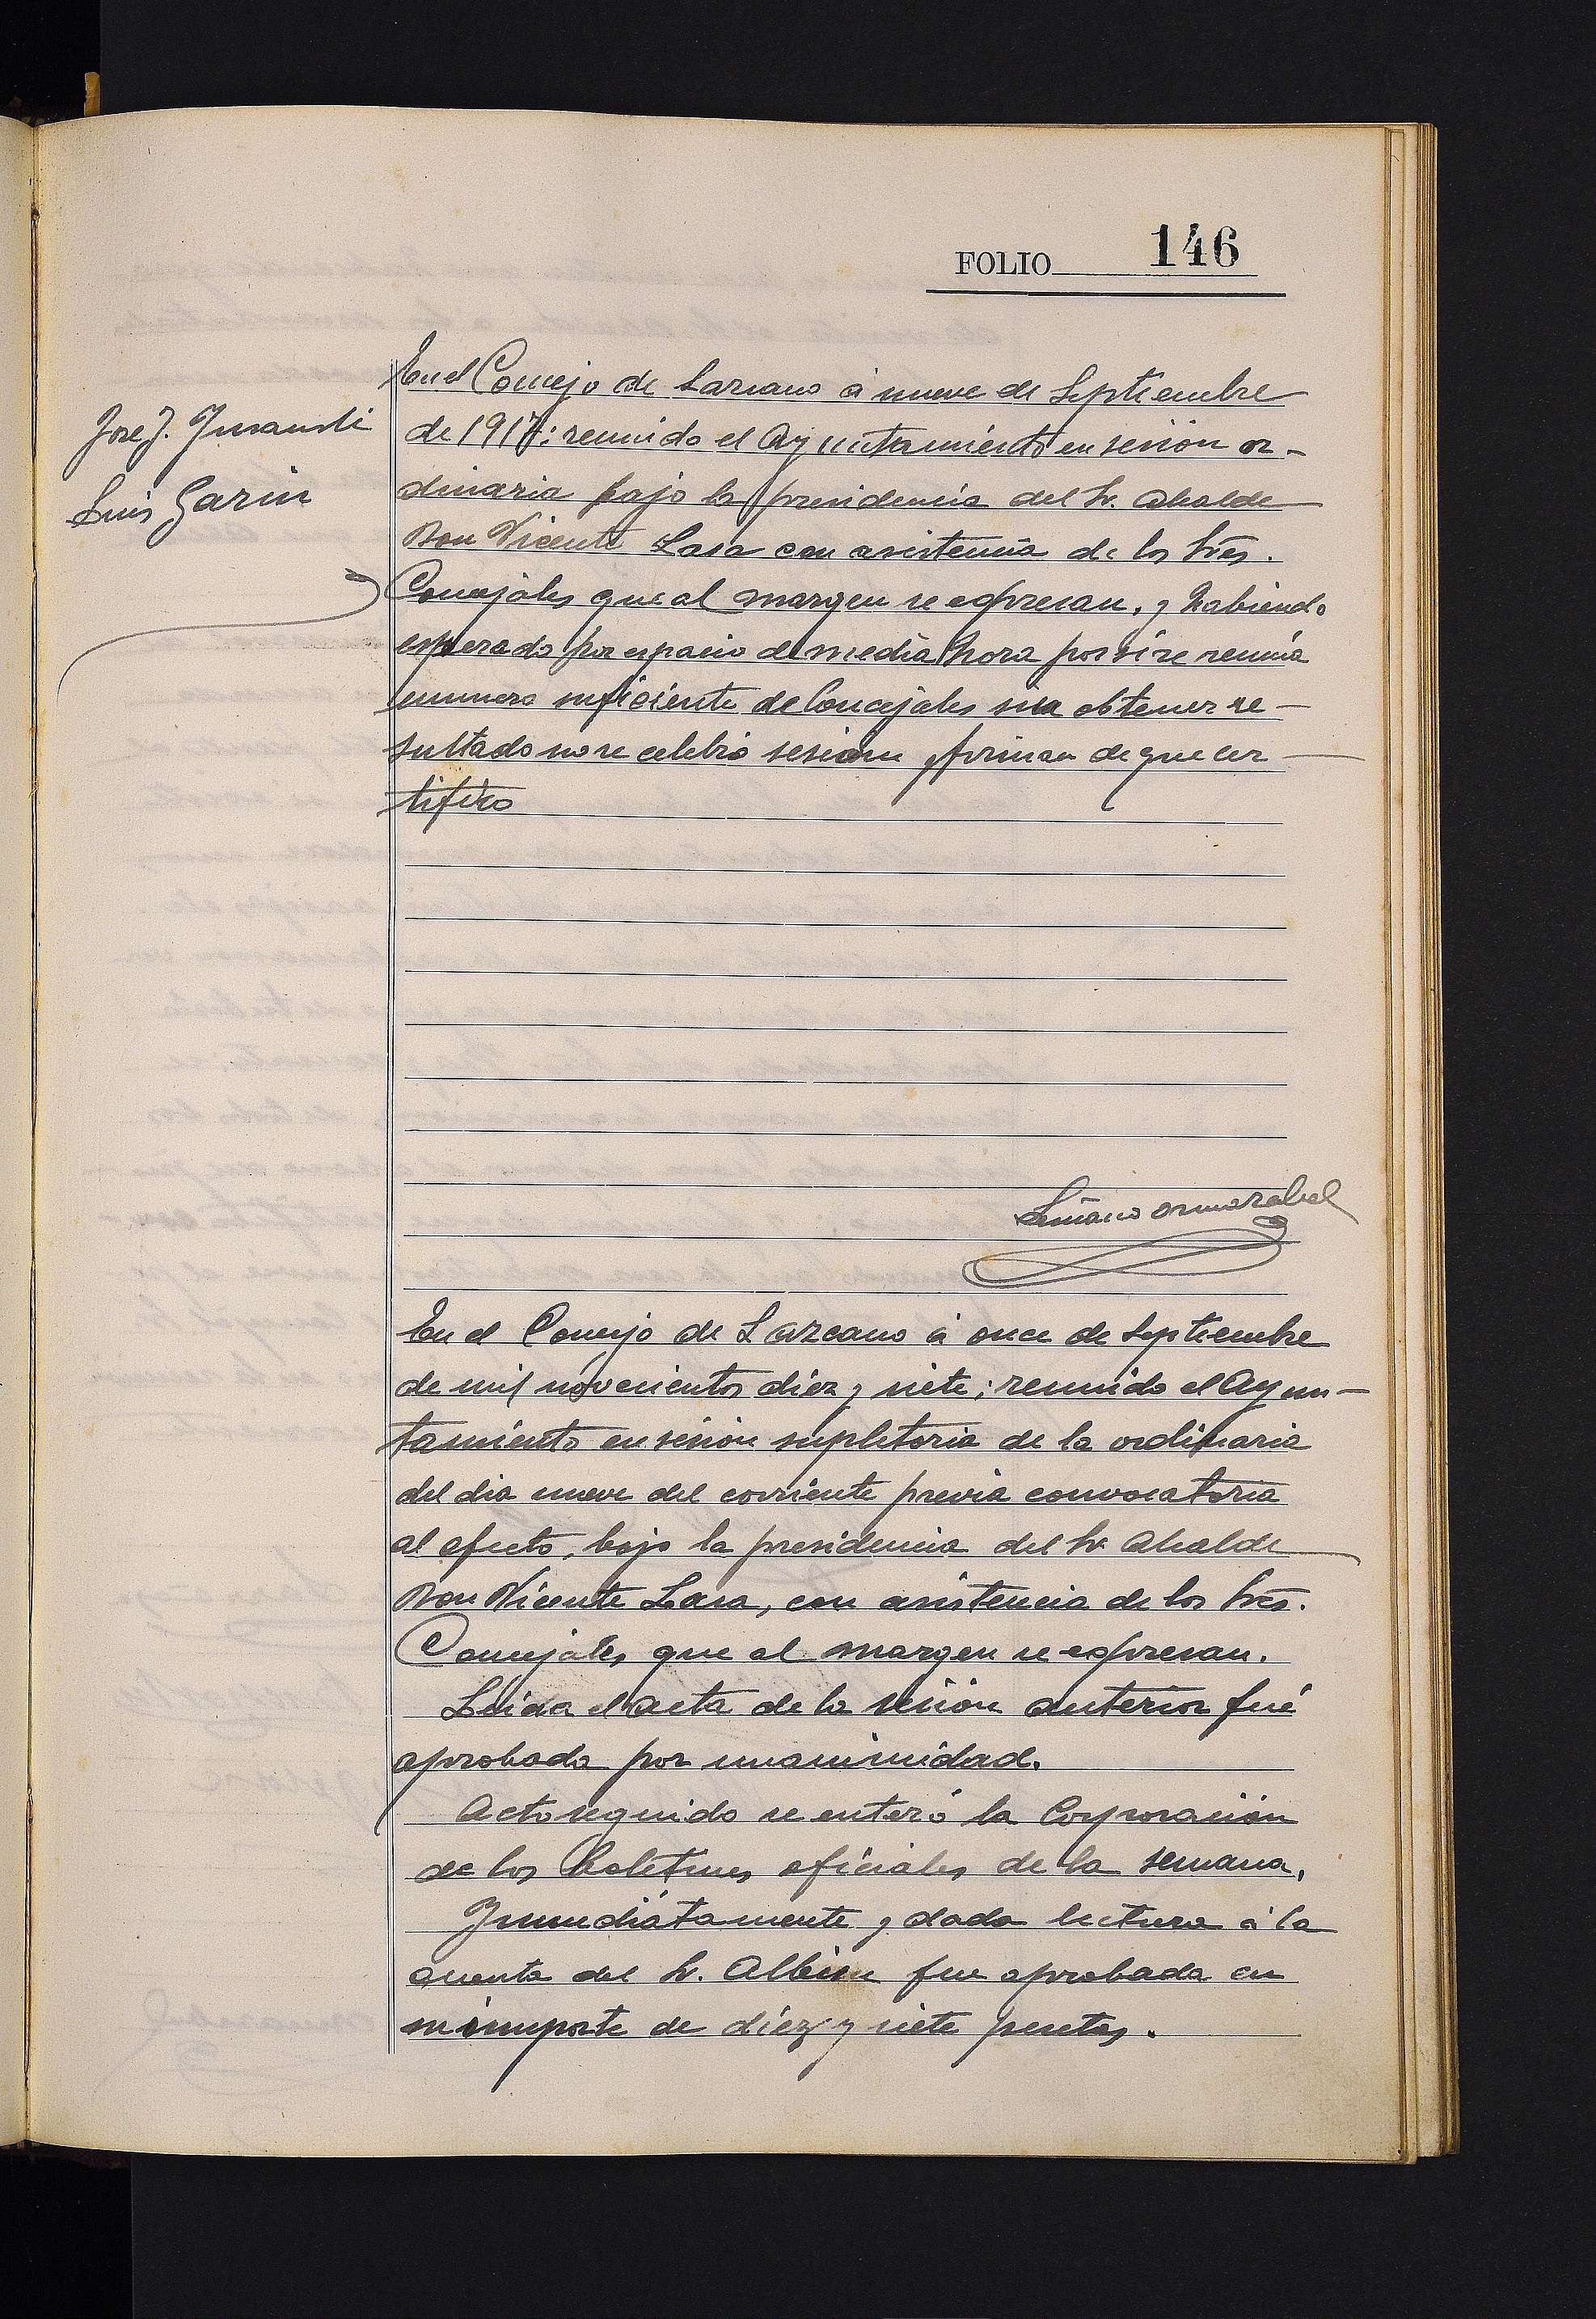 FOLIO 146
Jose J. Insausti
Luis Garin
En el Concejo de Lazcano á nueve de Septiembre
de 1917; reunido el Ayuntamiento en sesión or-
dinaria bajo la presidencia del Sr. Alcalde
Don Vicente Lasa con asistencia de los Sres.
Concejales que al margen se espresan, y habiendo
esperado por espacio de media hora por si se reunia
numero suficiente de Concejales sin obtener re-
sultado no se celebró sesion y firman de que cer-
tifico
Ormazabal
En el Concejo de Lazcano á once de Septiembre
de mil novecientos diez y siete; reunido el Ayun-
tamiento en sesión supletoria de la ordinaria
del dia nueve del corriente previa convocatoria
al efecto, bajo la presidencia del Sr. Alcalde
Don Vicente Lasa, con asistencia de los Sres.
Concejales que al margen se espresan.
Leida el acta de la sesión anterior fué
aprobada por unanimidad.
Acto seguido se enteró la Corporación
de los boletines oficiales de la semana.
Inmediatamente y dada lectura á la
cuenta del Sr. Albisu fue aprobada en
su importe de diez y siete pesetas.